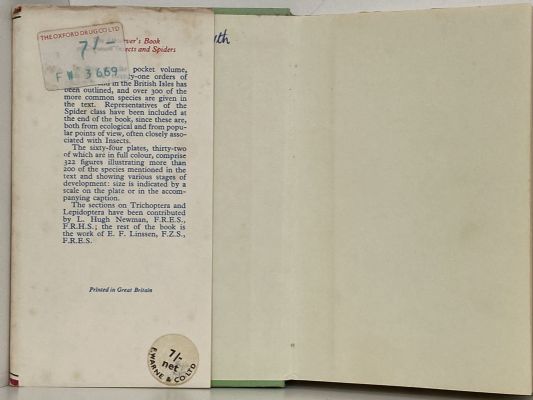 THE OXFORD DRUG CO LTD
7/-
F W 3 669
ver's Book
Insects and Spiders
pocket volume,
ty-one orders of
in the British Isles has
been outlined, and over 300 of the
more common species are given in
the text. Representatives of the
Spider class have been included at
the end of the book, since these are,
both from ecological and from popu-
lar points of view, often closely asso-
ciated with Insects.
The sixty-four plates, thirty-two
of which are in full colour, comprise
322 figures illustrating more than
200 of the species mentioned in the
text and showing various stages of
development: size is indicated by a
scale on the plate or in the accom-
panying caption.
The sections on Trichoptera and
Lepidoptera have been contributed
by L. Hugh Newman, F.R.E.S.,
F.R.H.S.; the rest of the book is
the work of E. F. Linssen, F.Z.S.,
F.R.E.S.
Printed in Great Britain
7/-
net
F. WARNE & CO LTD